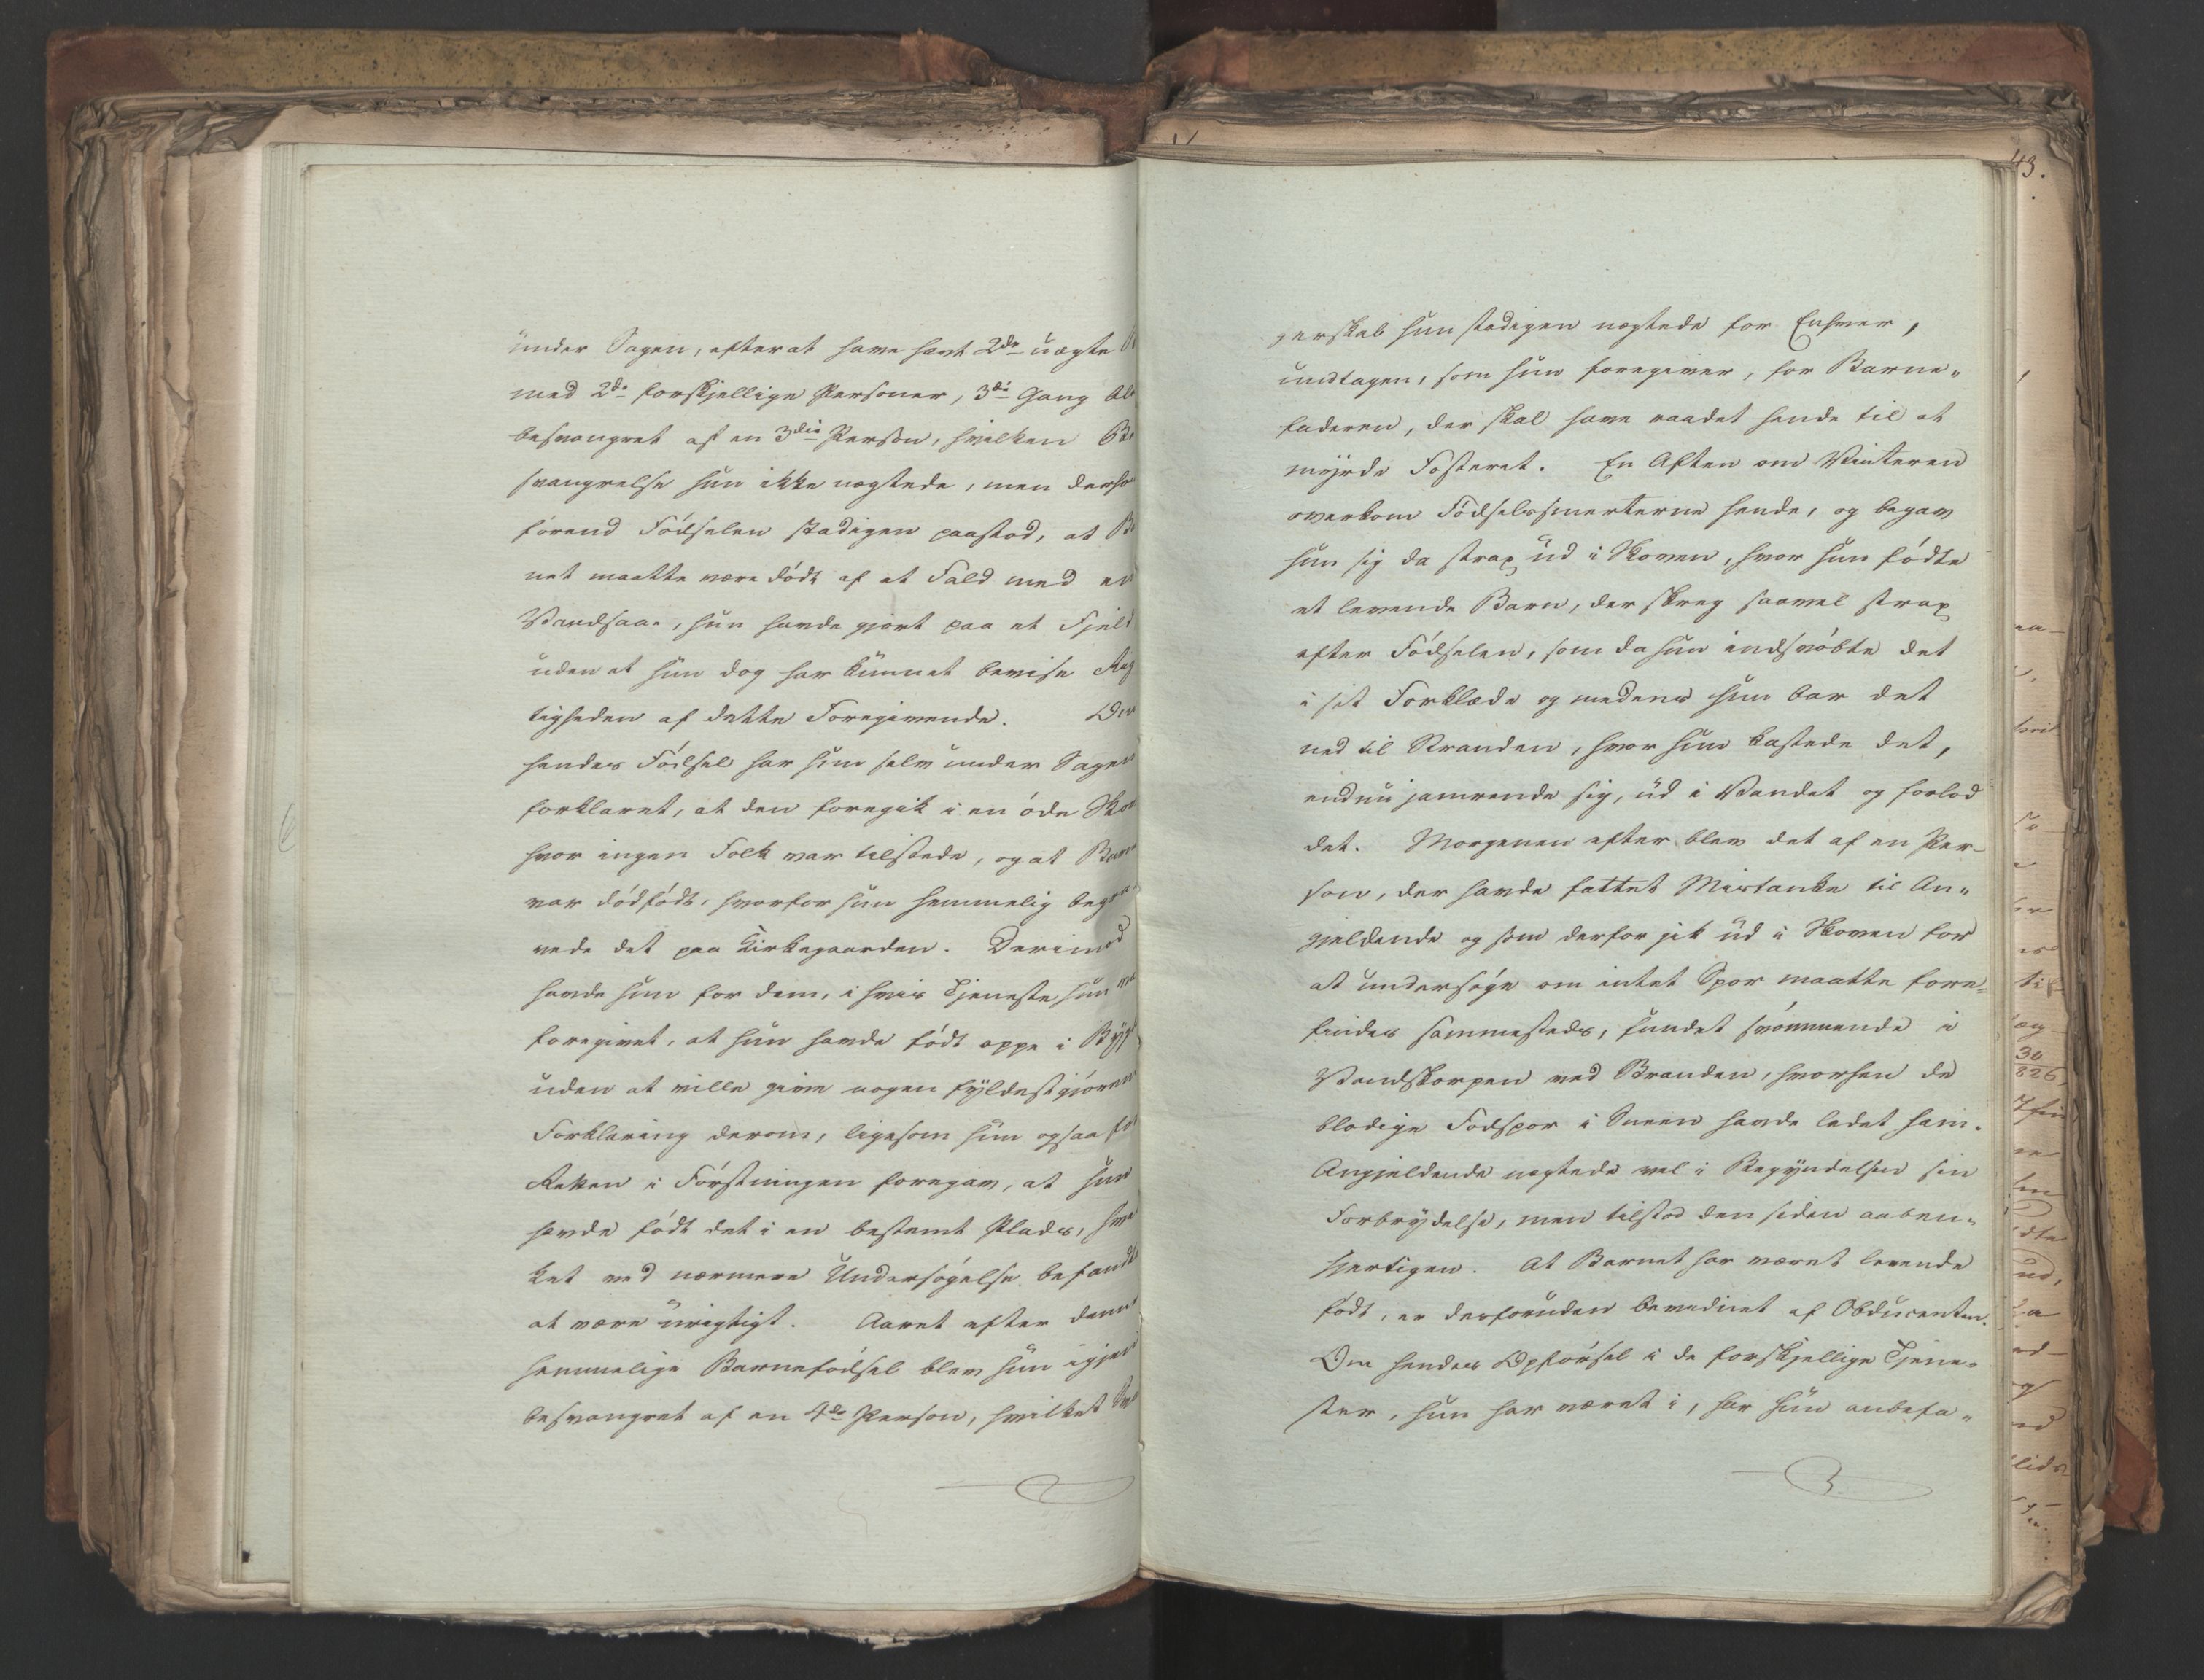 under Sagen, efterat have havt 2de uægte
med 2de forskjellige Personer, 3die Gang ble
besvangret af en 3die Person, hvilken Be
svangrelse hun ikke nægtede, men derfo
förend Födselen stadigen paastod, at Ba
net maatte være dödt af et Fald med en
Vandsaae, hun havde gjort paa et Fjeld
uden at hun dog har kunnet bevise Rig
tigheden af dette Foregivende. Om
hendes Födsel har hun selv under Sagen
forklaret, at den foregik i en öde Sko
hvor ingen Folk var tilstede, og at Barnet
var dödfödt, hvorfor hun hemmelig begra
vede det paa Kirkegaarden. Derimod
havde hun for dem, i hvis Tjeneste hun var
foregivet, at hun havde födt oppe i Bygd
uden at ville give nogen fyldestgjörend
Forklaring derom, ligesom hun ogsaa for
Retten i Förstningen foregav, at hun
havde födt det i en bestemt Plads, hvil
ket ved nærmere Undersögelse befandtes
at være urigtigt. Aaret efter denne
hemmelige Barnefödsel blev hun igjen
besvangret af en 4de Person, hvilket Sva
43.
gerskab hun stadigen nægtede for Enhver,
undtagen, som hun foregiver, for Barne„
faderen, der skal have raadet hende til at
myrde Fosteret. En Aften om Vinteren
overkom Födselssmerterne hende, og begav
hun sig da strax ud i Skoven, hvor hun födte
et levende Barn, der skreg saavel strax
efter Födselen, som da hun indsvöbte det
i sit Forklæde og medens hun bar det
ned til Stranden, hvor hun kastede det,
endnu jamrende sig, ud i Vandet og forlod
det. Morgenen efter blev det af en Per-
son, der havde fattet Mistanke til An„
gjeldende og som derfor gik ud i Skoven for
at undersöge om intet Spor maatte fore=
findes sammesteds, fundet svömmende i
Vandskorpen ved Stranden, hvorhen de
blodige Fodspor i Sneen havde ledet ham.
Angjeldende nægtede vel i Begyndelsen sin
Forbrydelse, men tilstod den siden aaben„
hjertigen. At Barnet har været levende
födt, er desforuden bevidnet af Obducenten.
Om hendes Opförsel i de forskjellige Tjene„
ster, hun har været i, har hun anbefa„